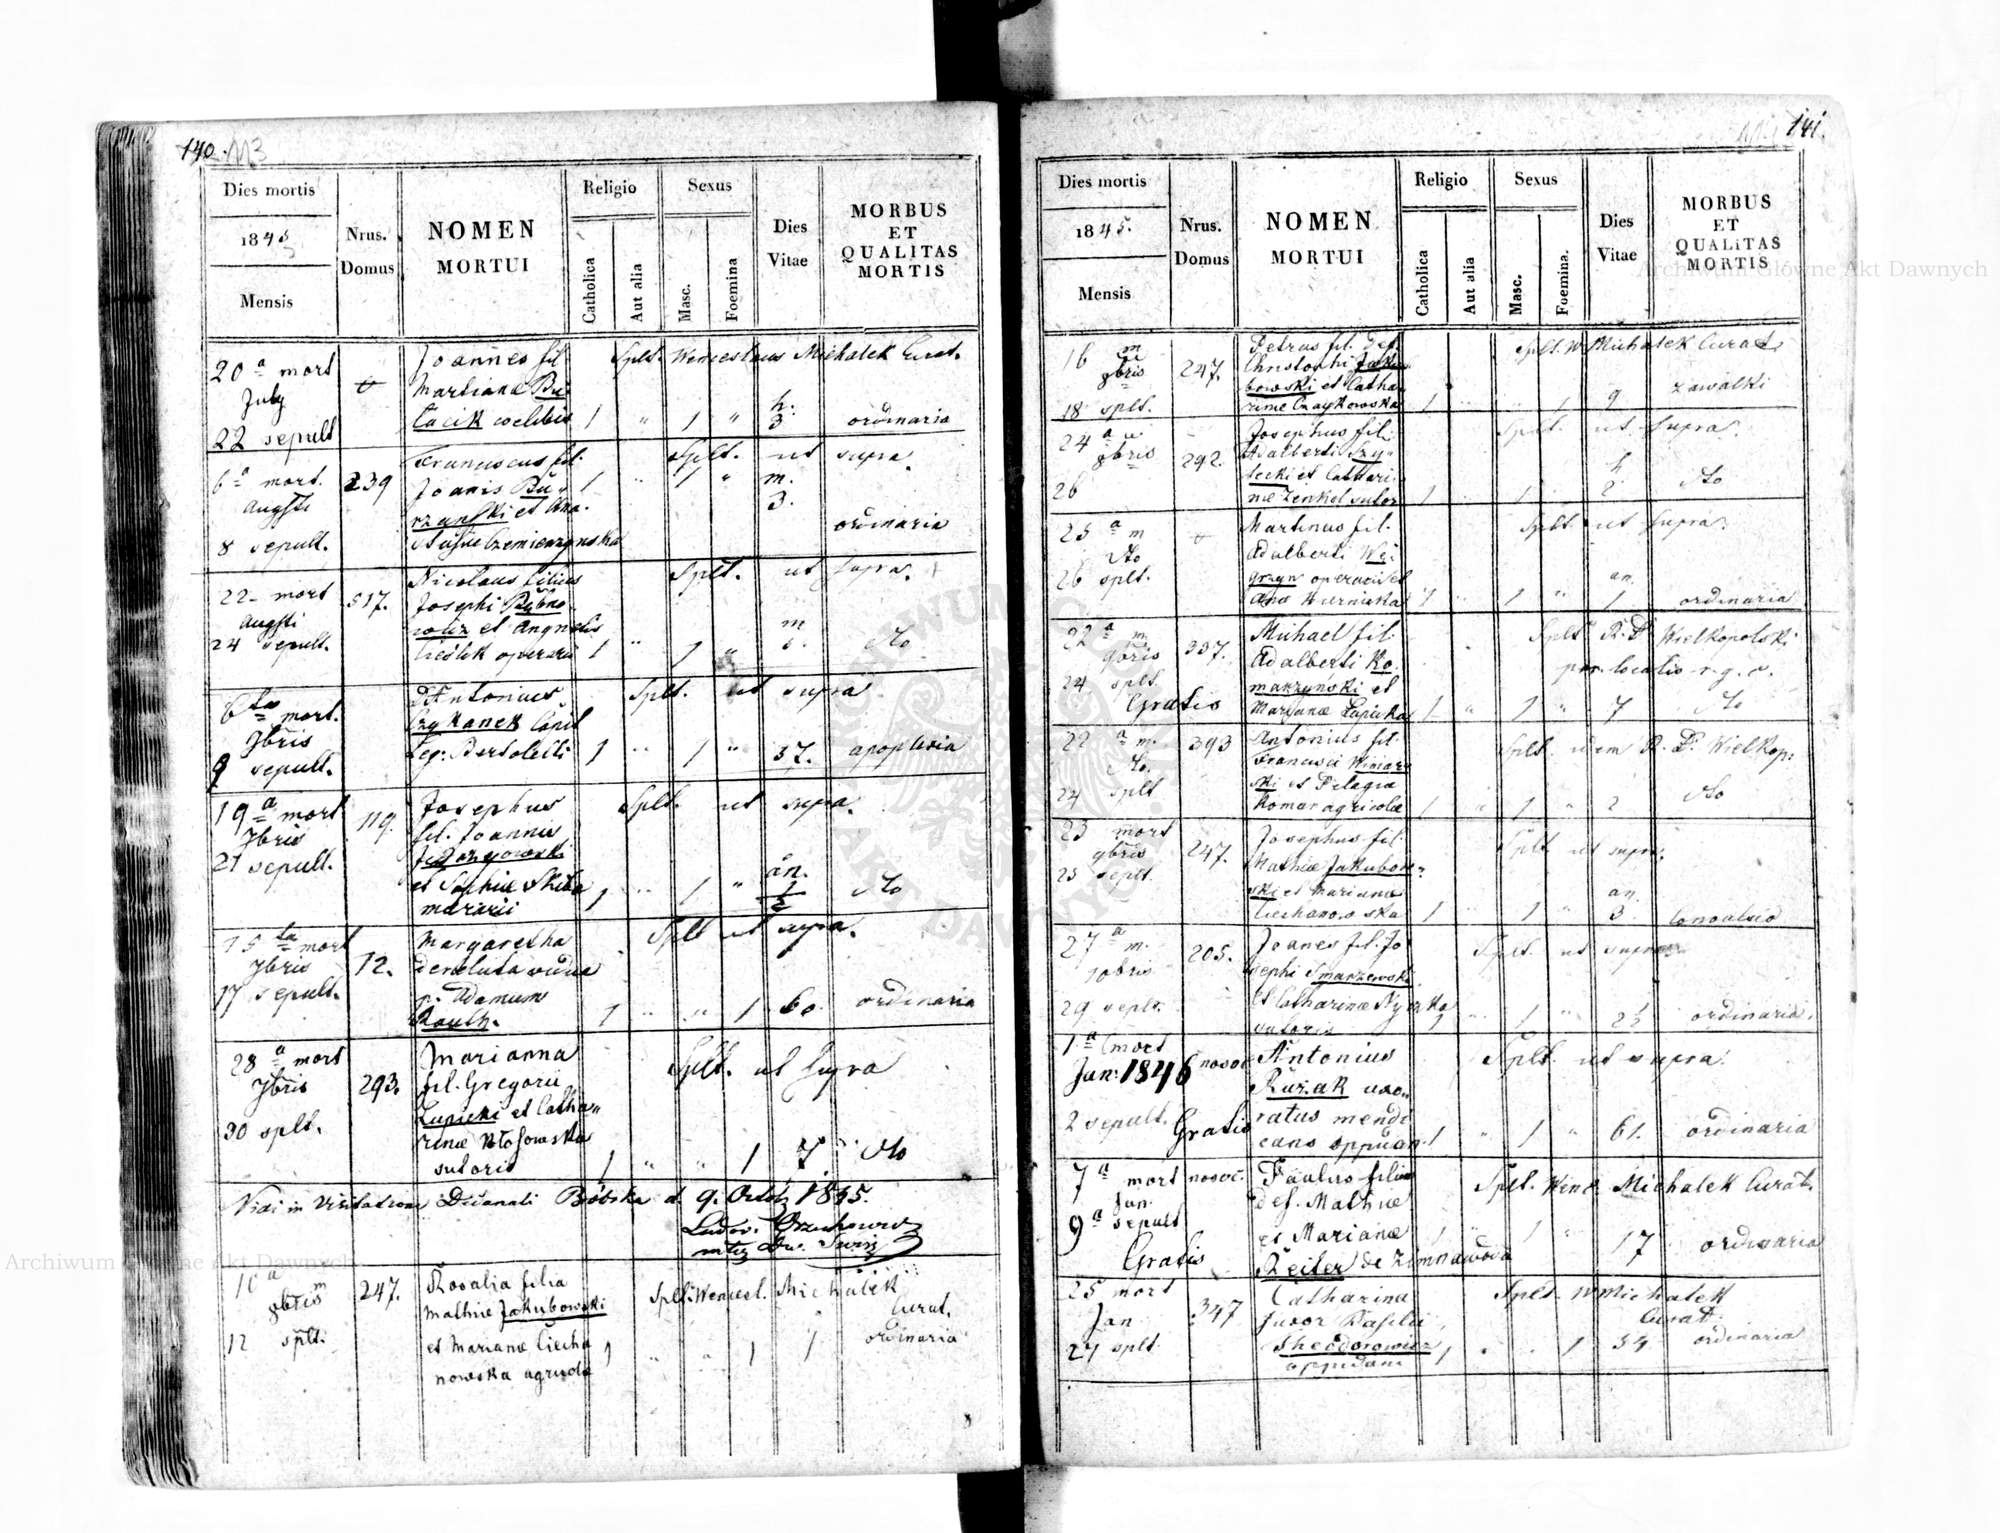 140. 113
Dies mortis
1845
Mensis
Nrus.
Domus
NOMEN
MORTUI
Religio
Catholica
Aut alia
Sexus
Masc.
Foemina
Dies
Vitae
MORBUS
ET
QUALITAS
MORTIS
20 a mort
July
22 sepult
Joannes fil
Martianae Bu
tacik coelibis
Splt. Wenceslaus Michalek Curat.
1 " 1 " h. 3 ordinaria
6 a mort.
Augsti
8 sepult.
239
Franciscus fil.
Joanis Bu
rzynski et Ana
Splt. ut supra.
1 " 1 " m. 3.
ordinaria
22 mort
Augsti
24 sepult.
517.
Nicolaus filius
Josephi Rybno
wicz et Angnetis
Cieślik operarii
Splt. ut supra.
1 " 1 " m
6 ta mort.
7bris
9 sepult.
Antonius
Czykanek Capit
Leg: Bertoletti
Splt. ut supra
1 " 1 " 37. apoplexia
19 a mort
7bris
21 sepult.
119.
Josephus
fil. Joannis
et Sophiae Skiba
murarii
Splt. ut supra.
1 " 1 " an. 1/2 dto
15 ta mort
7bris
17 sepult.
12.
Margaretha
derelicta vidua
p. Adamum
Splt ut supra.
1 " " 1 60 ordinaria
28 a mort
7bris
30 splt.
293.
Marianna
fil. Gregorii
Łupicki et Catha
rinae Kłosowska
sutoris
Splt. ut supra
1 " " 1 7. dto
Vidi in Visitatione Decanali Bóbrka d. 9. Octob 1845.
10 a m
9bris
12 splt.
247.
Rosalia filia
Mathiae Jakubowski
et Marianae Ciecha
nowska agricolae
Splt. Wencesl. Michałek
Curat.
1 " " 1 1 ordinaria
141.
Dies mortis
1845.
Mensis
Nrus.
Domus
NOMEN
MORTUI
Religio
Catholica
Aut alia
Sexus
Masc.
Foemina.
Dies
Vitae
MORBUS
ET
QUALITAS
MORTIS
16 m
9bris
18 splt.
247.
Petrus fil. def.
Christophi Jaku
bowski et Catha
rinae Czaykowska
Splt. W Michałek Curat.
9 zawalki
24 a m
9bris
26
292.
Josephus fil.
Adalberti Szy
tecki et Cathari
nae Zenkel sutor
Splt. ut supra.
1 " 1 " h 2 dto
25 a m
dto
26 splt.
Martinus fil.
Adalberti We
grzyn operarii et
Anae Kuznicka
Splt ut supra.
1 " 1 " an. 1 ordinaria
22 a m
9bris
24 splt.
Gratis
337.
Michael fil.
Adalberti Ko
marzynski et
Marianae Łapicka
Splt R. P. Wielkopolski
par. locatis r. g. c.
1 " 1 " 7 dto
22 a m.
dto.
24 splt
393
Antonius fil.
Francisci Winiarz
ski et Pelagia
Komar agricolae
Splt. idem R. P. Wielkop:
1 " 1 " 2 dto
23 mort
9bris
25 seplt.
247.
Josephus fil.
Mathiae Jakubow
ski et Marianae
Ciechanowska
Splt ut supra.
1 " 1 " an. 3 Convulsio
27 a m.
10bris
29 seplt.
205.
Joanes fil. Jo
sephi Smarzewski
et Catharinae Ryczka
sutoris
Splt. ut supra
1 " 1 " 2 1/2 ordinaria.
1 a mort
Jan: 1846
2 sepult.
Gratis
nosoc
Antonius
Ruzak uxo
ratus mendi
cans oppidan
Splt. ut supra.
1 " 1 " 61. ordinaria
7 a mort
Jan.
9 a sepult
Gratis
nosoc.
Paulus filius
def. Mathiae
et Marianae
Reiter de Zimnawoda
Splt. Wenc Michalek Curat.
1 " 1 " 17 ordinaria
25 mort
Jan
27 splt
347
Catharina
Basilii
Theodorowicz
oppidani
Splt. W Michalek
Curat.
1 " " 1 34 ordinaria
Archiwum Główne Akt Dawnych
Archiwum Główne Akt Dawnych
ARCHIWUM GŁÓWNE AKT DAWNYCH